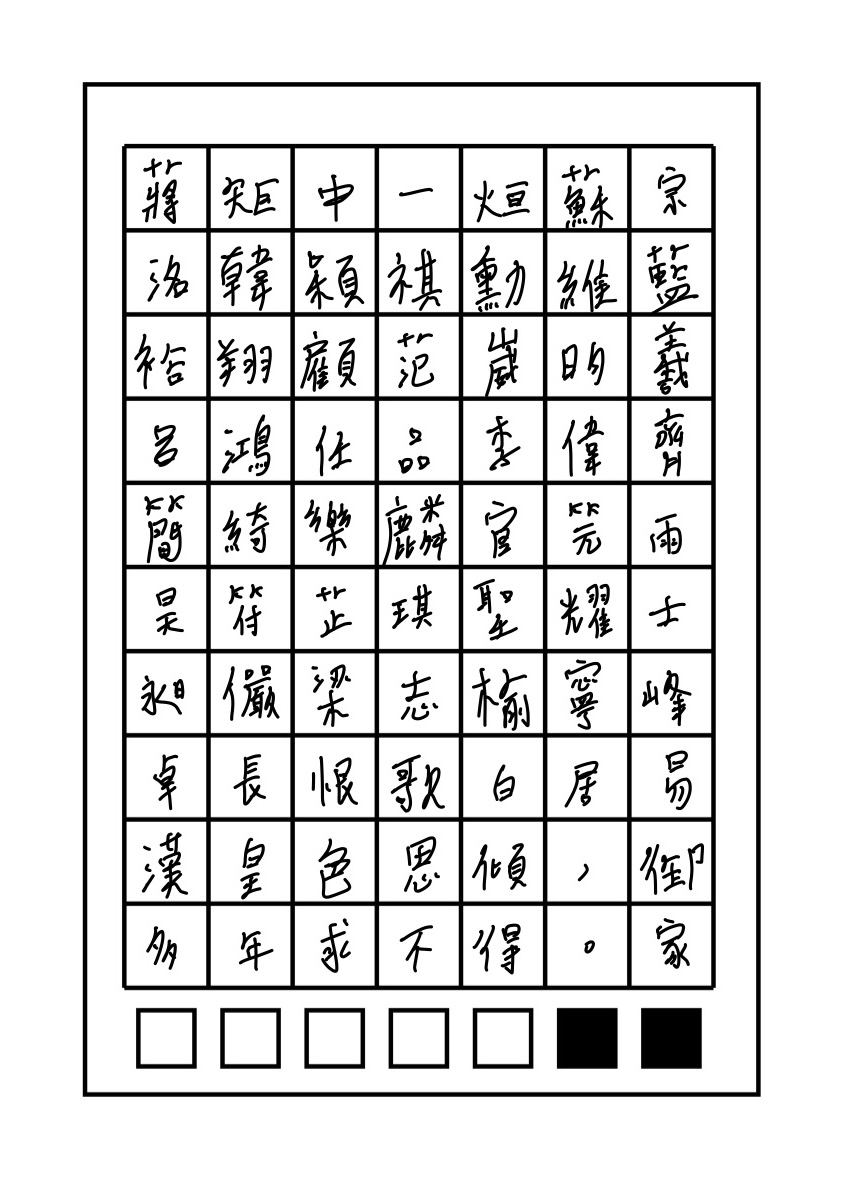 蔣矩中一烜蘇宗
洛韓穎祺勳維藍
裕翔顧范崴昀羲
呂鴻任品季偉齊
簡綺樂麟官笎雨
昊符芷琪聖耀士
昶儼梁志榆寧峰
卓長恨歌白居易
漢皇色思傾，御
多年求不得。家